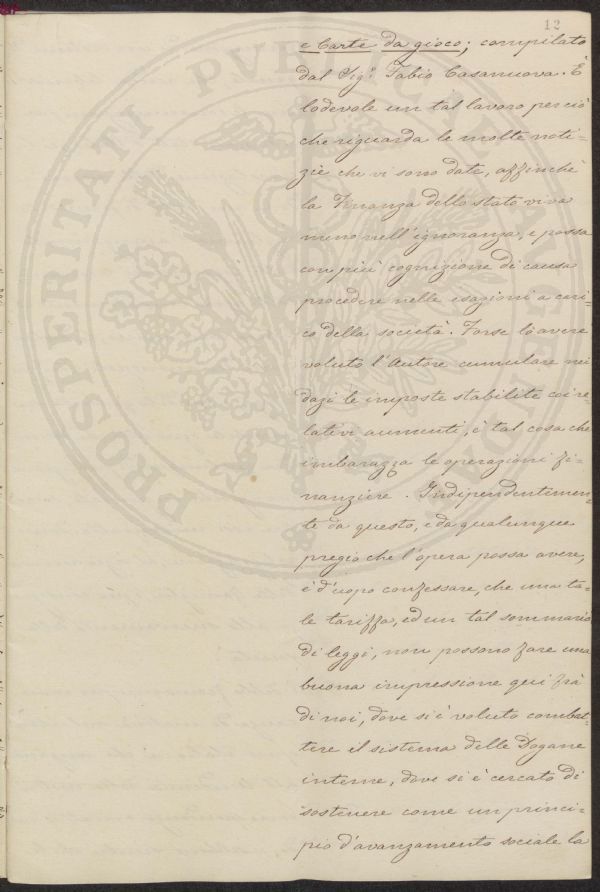 12
e Carte da gioco; compilato
dal Sig.r Fabio Casanuova. È
lodevole un tal lavoro perciò
che riguarda le molte noti=
zie che vi sono date, affinchè
la Finanza dello stato viva
meno nell'ignoranza, e possa
con più cognizione di causa
procedere nelle esazioni a cari=
co della società. Forse lo avere
voluto l'Autore cumulare nei
dazi le imposte stabilite coi re
lativi aumenti, è tal cosa che
imbarazza le operazioni fi=
nanziere. Indipendentemen=
te da questo, e da qualunque
pregio che l'opera possa avere,
è d'uopo confessare, che una ta=
le tariffa, ed un tal sommario
di leggi, non possono fare una
buona impressione qui frà
di noi, dove si è voluto combat=
tere il sistema delle Dogane
interne, dove si è cercato di
sostenere come un princi=
pio d'avanzamento sociale la
PROSPERITATI PVBLICAE AVGENDAE